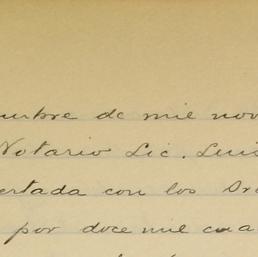 de mil nov
Notario Lic. Luis
ertada con los
por doce mil cua